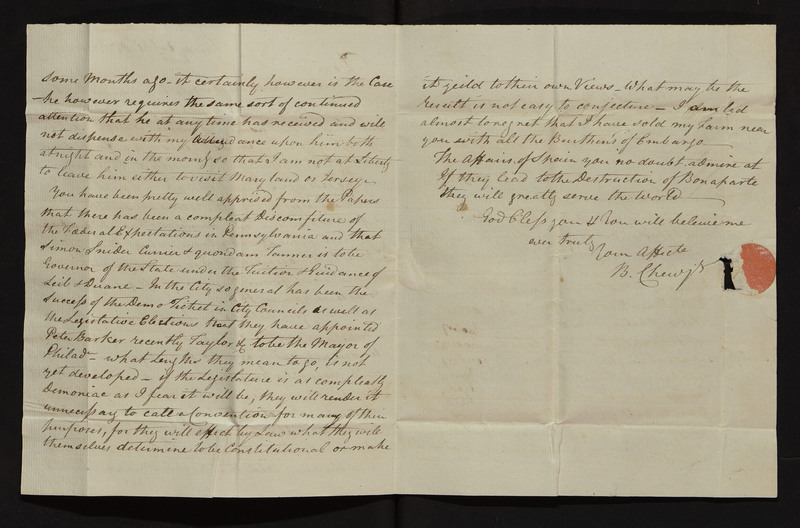 some Months ago - it certainly however is the Case
- he however requires the same sort of continued
attention that he at any time has received and will
not dispense with my attendance upon him both
at night and in the morng so that I am not at Liberty
to leave him either to visit Maryland or Jersey -
You have been pretty well apprised from the Papers
that there has been a compleat Discomfiture of
the Fœderal Expectations in Pennsylvania and that
Simon Snider Currier & quondam Tanner is to be
Governor of the State under the Tuition & Guidance of
Leib & Duane - In the City so general has been the
Success of the Demo Ticket in City Councils as well as
the Legislative Elections that they have appointed
Peter Barker recently Taylor &c to be the Mayor of
Philada - what Lengths they mean to go, is not
yet developed - if the Legislature is as compleatly
Demoniac as I fear it will be, they will render it
unnecessary to call a Convention for many of their
purposes, for they will effect by Law what they will
themselves determine to be Constitutional or make
it yeild to their own Views - What may be the
result is not easy to conjecture - I am led
almost to regret that I have sold my Farm near
you with all the Burthens of Embargo
The Affairs of Spain you no doubt admire at
If they lead to the Destruction of Bonaparte
they will greatly serve the World
God bless you & You will believe me
ever truly
Your Affecte
B. Chew jr